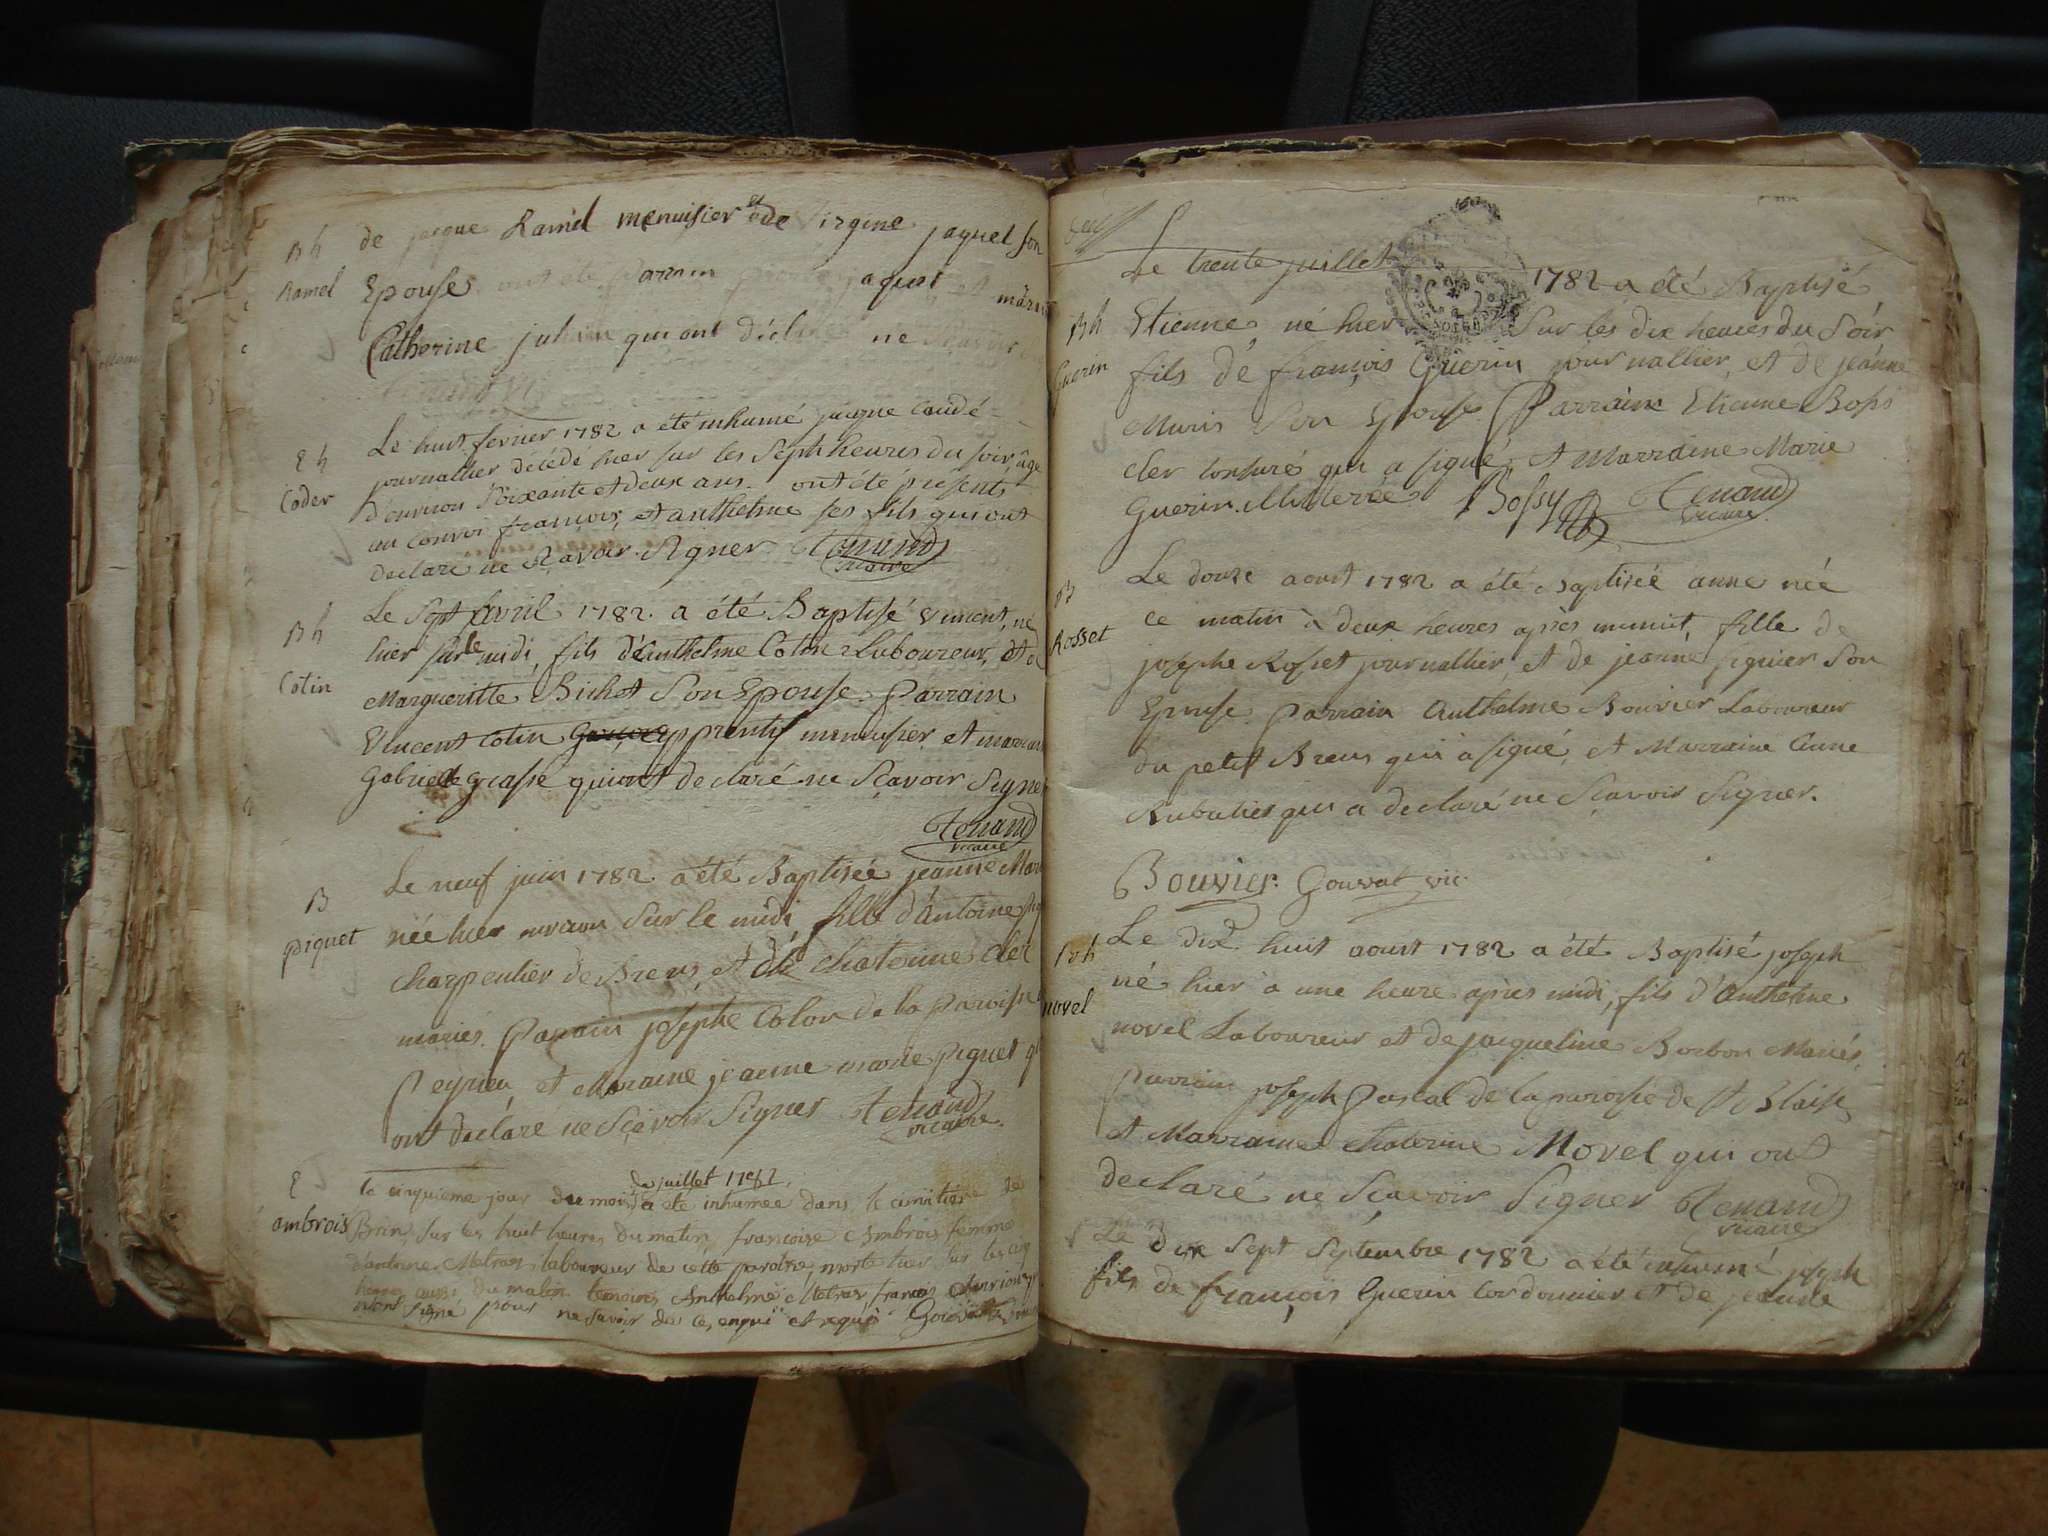 Bh
Ramel
de jacque Ramel menuisier et de Virgine jaquet son
Epouse ont été parrain jaquet et marrai
Catherine julien qui ont déclaré ne
Eh
Coder
Le huit fevrier 1782 a été inhumé jacque Coudé
journallier décédé hier sur les Sept heures du soir, âgé
d'environ Soixante et deux ans. ont été présents
au convoi françois, et anthelme ses fils qui ont
declaré ne Scavoir Signer. Tenand
vicaire
Bh
Cotin
Le sept avril 1782. a été Baptisé Vincent, né
hier sur le midi, fils d'Anthelme Cotin Laboureur, et d
Margueritte Bichet Son Epouse. Parrain
Vincent Cotin apprentif menuisier, et marrain
Gabrielle grasse qui ont declaré ne Sçavoir Signer
Tenand
vicaire
B
piquet
Le neuf juin 1782 a été Baptisée jeanne Mari
née hier environ Sur le midi, fille d'Antoine piq
charpentier de Brens, et de Chaterine Clet
mariés. Parain josephe Colon de la paroisse
Peyrieu, et Maraine jeanne marie Piquet q
ont declaré ne Sçavoir Signer Tenand
vicaire.
E
ambrois
le cinquieme jour du mois de juillet 1782. a été inhumée dans le cimitière de
Brin, sur les huit heures du matin, francoise Ambrois femme
d'antoine Metras laboureur de cette paroisse, morte hier sur les cinq
heures aussi du matin temoins Anthelme Metras, francois
n'ont signé pour ne savoir de ce enquis et requis
Le trente juillet 1782 a été Baptisé
Bh
Guerin
Etienne, né hier Sur les dix heures du Soir
fils de françois Guerin journallier, et de jeanne
Muris Son Epouse. Parrain Etienne Bossi
cler tonsuré qui a signé, et Marraine Marie
Guerin. Bossy Tenand
vicaire.
B
Rosset
Le douze aoust 1782 a été Baptisée anne née
ce matin à deux heures après minuit, fille de
josephe Rosset journallier, et de jeanne figuier Son
Epouse. Parrain Anthelme Bouvier Laboureur
du petit Brens qui a signé, et Marraine Anne
Rubatier qui a declaré ne Sçavoir Signer.
Bouvier. Gouvat vic.
Bh
novel
Le dix huit aoust 1782 a été Baptisé joseph
né hier à une heure après midi, fils d'Anthelme
novel Laboureur et de jacqueline Borbon Mariés.
parrain joseph Pascal de la paroisse de St Blaise
et Marraine Chaterine Novel qui ont
declaré ne Sçavoir Signer Tenand
vicaire
Le dix Sept Septembre 1782 a été inhumé joseph
fils de françois Guerin Cordonnier et de jeanne